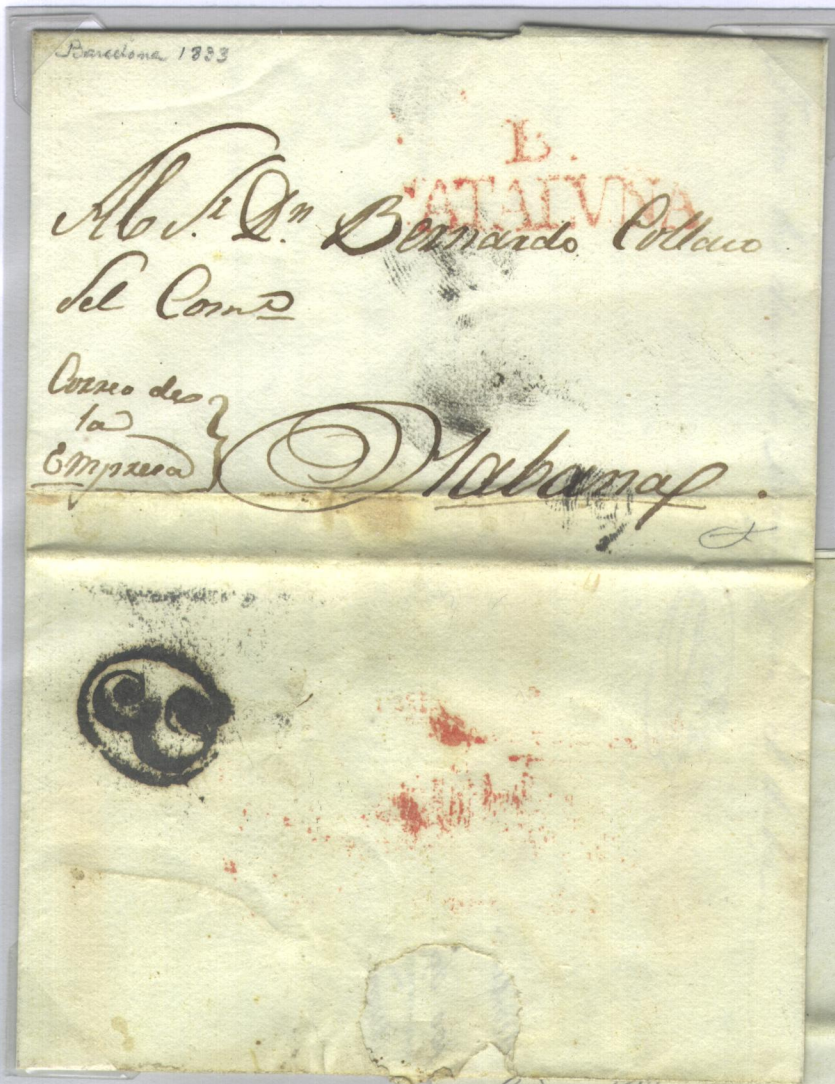 Barcelona 1833
B.
CATALUÑA
Al Sr. Dn. Bernardo Collaso
del Como
Correo de
la
Empresa
Habana.